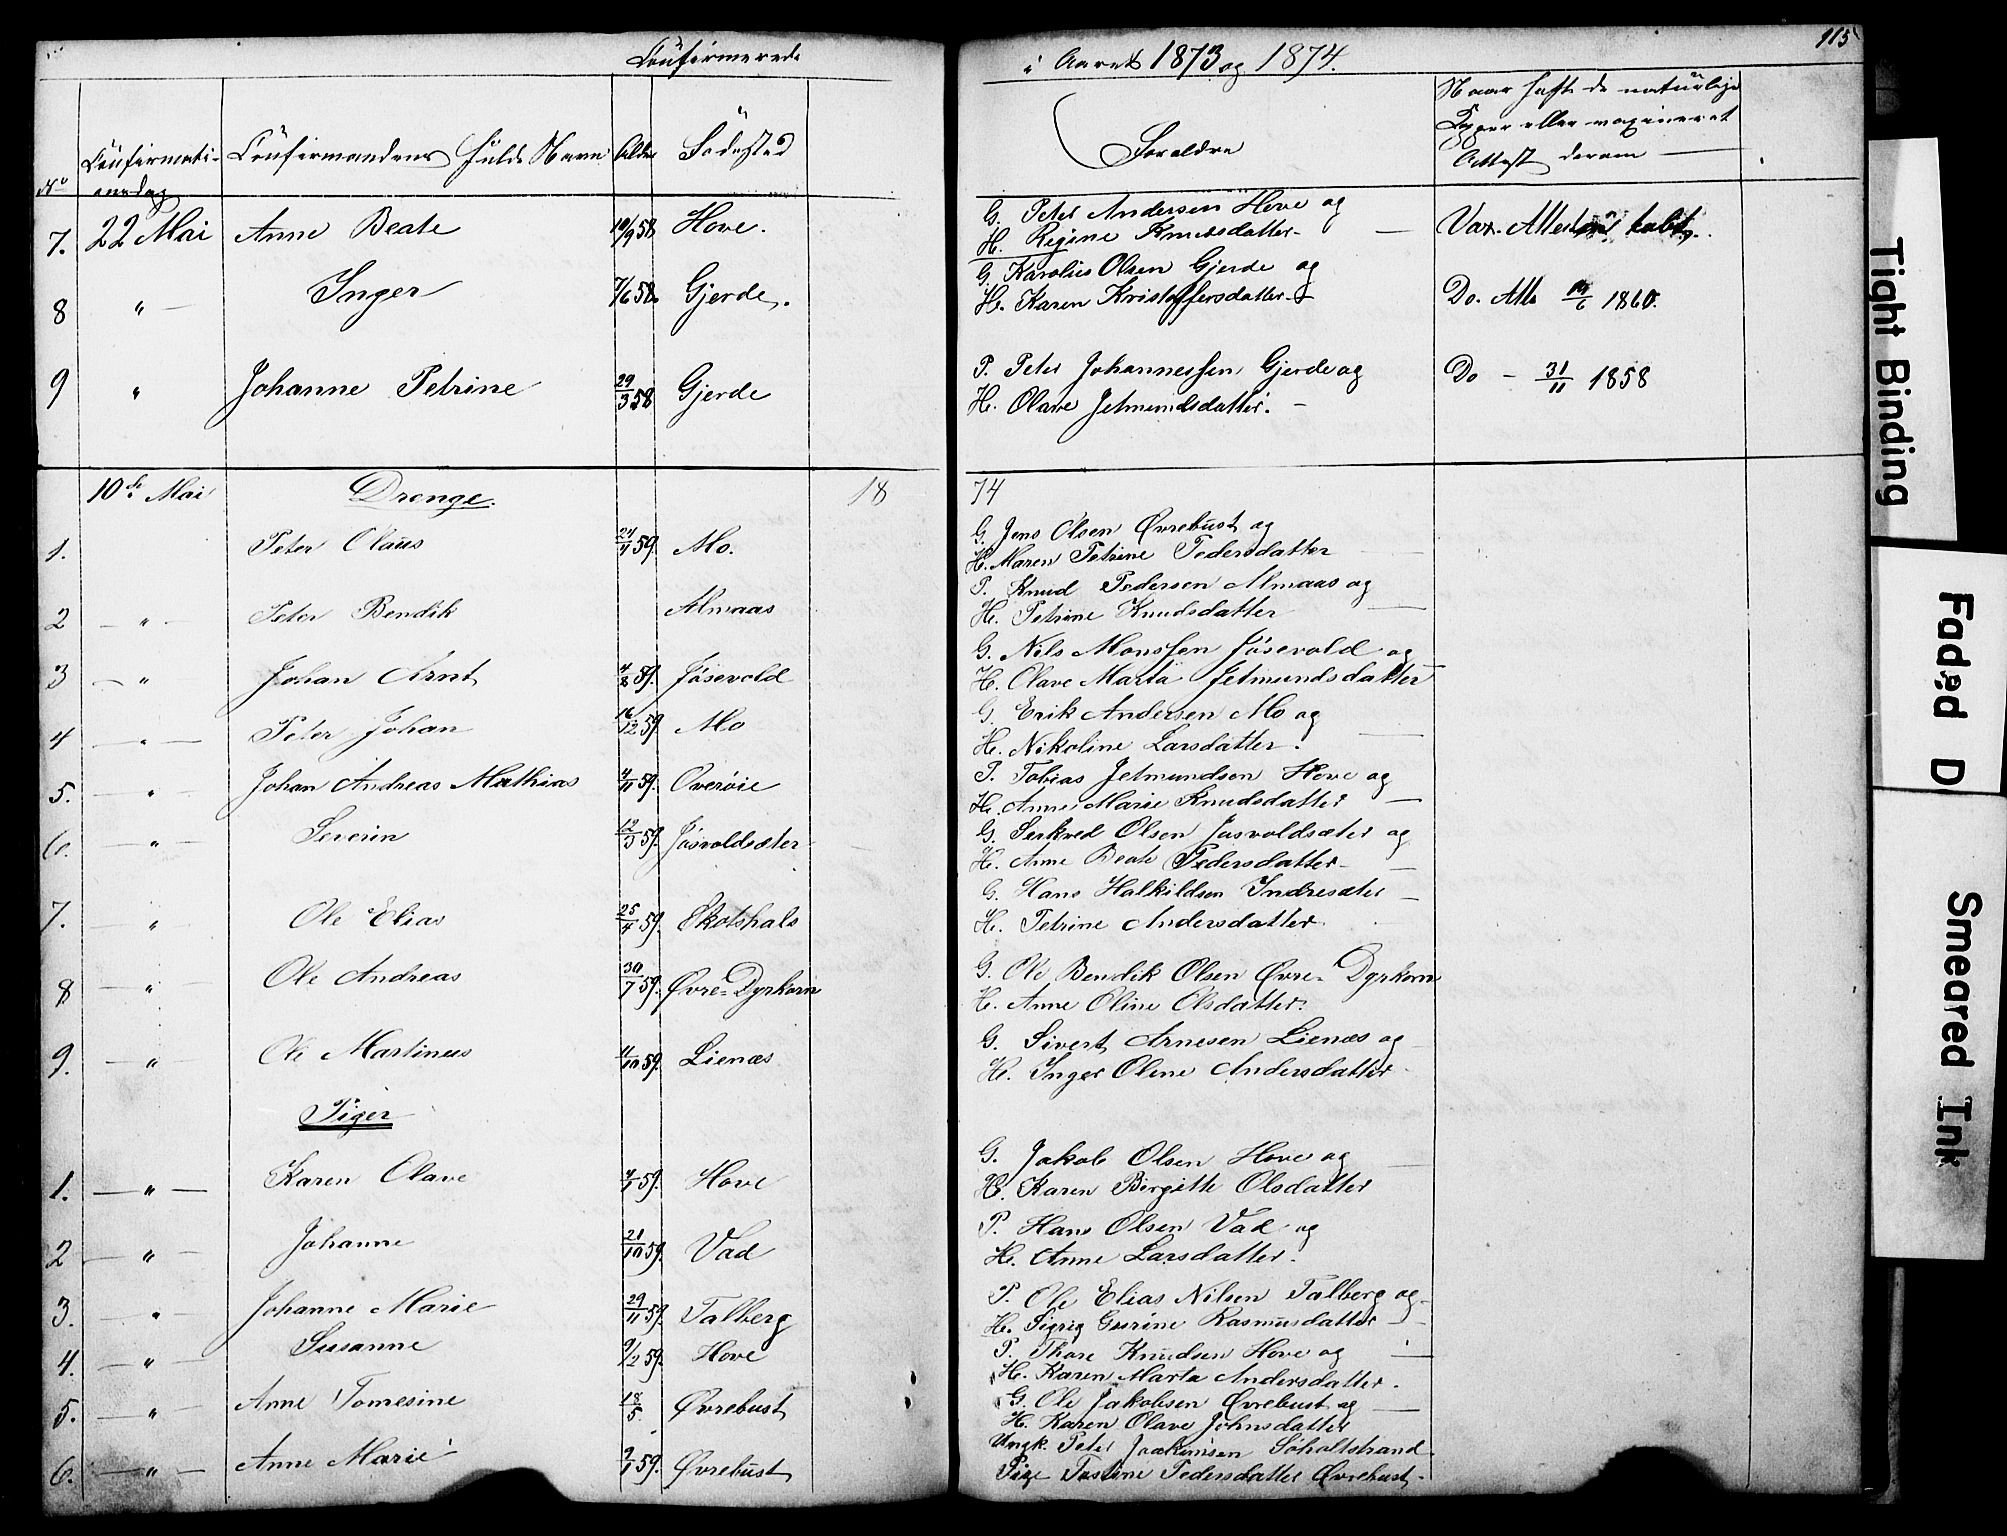 Confirmerede i Aaret 1873 og 1874.
115
No Confirmationsdag Confirmandens fulde Navn Alder Fødested Forældre Naar havt de naturlige
Kopper eller vaxineret
Attest derom
7. 22 Mai Anne Beate 10/9 58 Hove. G. Peter Andersen Hove og Vax. Attesten tabt.
H. Regine Knudsdatter
8 " Inger 7/6 58. Gjerde. G. Karolius Olsen Gjerde og Do. Atte 14/6 1860.
H. Karen Kristoffersdatter
9 " Johanne Petrine 29/3 58 Gjerde P. Peter Johannessen Gjerde og Do - 31/11 1858
H. Olave Jetmundsdatter.
10de Mai Drenge. 1874
1. Peter Olaus 24/4 59. Mo. G. Jens Olsen Øvrebust og
H. Maren Petrine Pedersdatter
2 " Peter Bendik Almaas P. Knud Pedersen Almaas og
H. Petrine Knudsdatter
3 " Johan Arnt 4/8 59. Jøsevold G. Nils Monssen Jøsevold og
H. Olave Marta Jetmundsdatter
4 " Peter Johan 16/12 59. Mo G. Erik Andersen Mo og
H. Nikoline Larsdatter.
5. " Johan Andreas Mathias 4/11 59. Overøie P. Tobias Jetmundsen Hove og
H. Anne Marie Knudsdatter
6. " Severin 12/3 59. Jøsvoldsæter G. Serkved Olsen Jøsvoldsæter og
H. Anne Beate Pedersdatter
7. " Ole Elias 25/4 59. Skotshals G. Hans Halkildsen Indresæter
H. Petrine Andersdatter
8 " Ole Andreas 30/7 59. Øvre-Dyrkorn G. Ole Bendik Olsen Øvre-Dyrkorn
H. Anne Oline Olsdatter.
9. " Ole Martinus 11/10 59. Lienæs G. Sivert Arnesen Lienæs og
H. Inger Oline Andersdatter
Piger
1. " Karen Olave 4/1 59. Hove G. Jakob Olsen Hove og
H. Karen Birgitte Olsdatter
2 " Johanne 21/10 59. Vad P. Hans Olsen Vad og
H. Anne Larsdatter.
3. " Johanne Marie 29/11 59. Talberg P. Ole Elias Nilsen Talberg og
H. Sigrig Gurine Rasmusdatter
4. " Susanne 9/2 59. Hove P. Thore Knudsen Hove og
H. Karen Marta Andersdatter.
5. " Anne Tomesine 18/5 Øvrebust G. Ole Jakobsen Øvrebust og
H. Karen Olave Johnsdatter
6. " Anne Marie 2/1 59. Øvrebust Ungk. Peter Joakimsen Søholtstrand
Pige Tostine Pedersdatter Øvrebust.
Tight Binding
Faded D
Smeared Ink